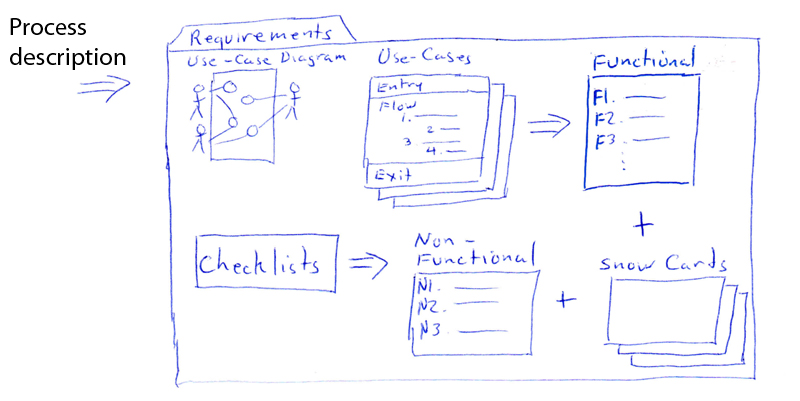 Process
description
Requirements
Use-Case Diagram
Use-Cases
Entry
Flow
1.
2
3
4.
Exit
Functional
F1.
F2.
F3
Checklists
Non-
Functional
N1.
N2.
N3
+
+
Snow Cards